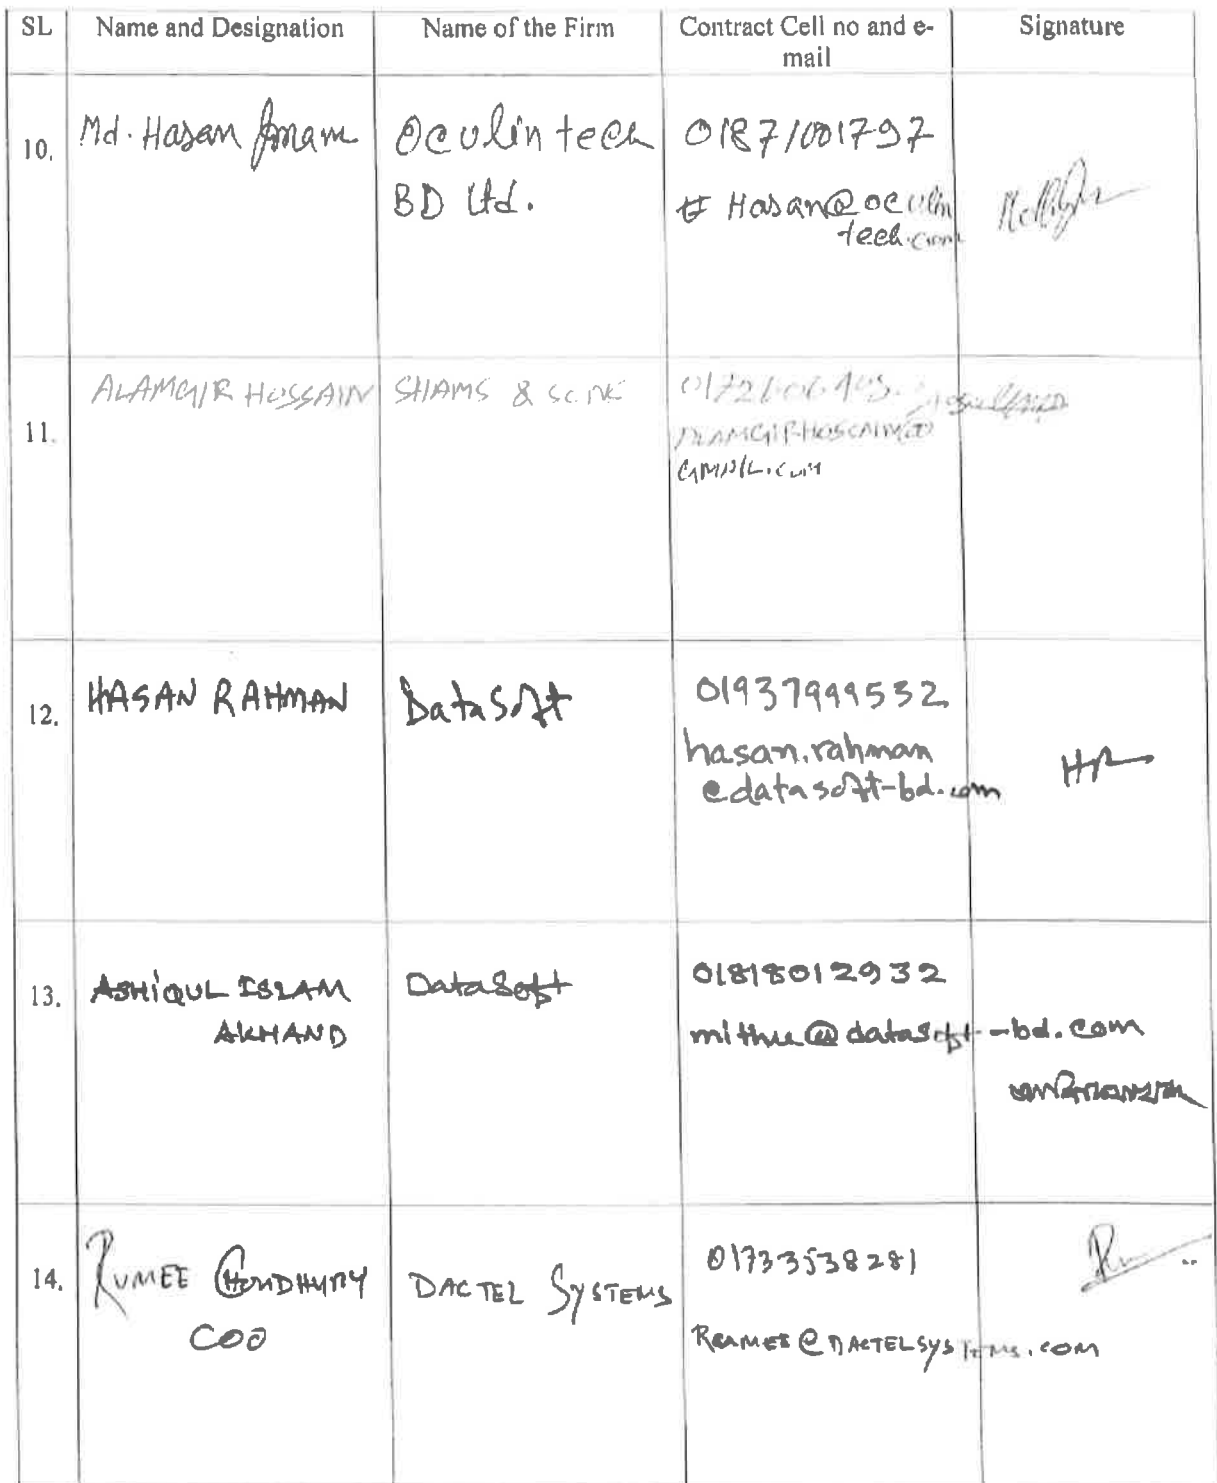 SL Name and Designation Name of the Firm Contract Cell no and e-mail Signature
10. Md. Hasan Imam Oculin tech 01871001797
BD Ltd. Hasan@oculin
tech.com
11. ALAMGIR HOSSAIN SHAMS &
ALAMGIRHOSSAIN@
GMAIL.COM
12. HASAN RAHMAN DataSoft 01937999532
hasan.rahman
@datasoft-bd.com
13. ASHIQUL ISLAM DataSoft 01818012932
AKHAND mithu@datasoft-bd.com
14. RUMEE CHOUDHURY DACTEL SYSTEMS 01733538281
COO @DACTELSYSTEMS.COM